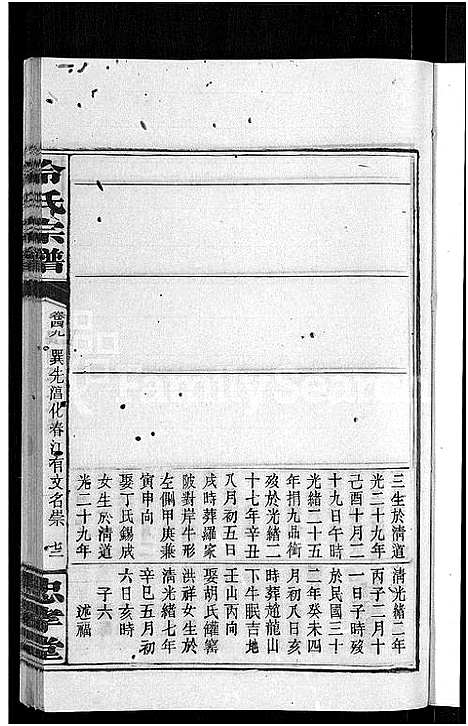 三生於清道
光二十九年
己酉十月二
十九日午時
光緒二十五
年捐九品銜
歿於光緒二
十七年辛丑
八月初五日
戌時葬羅家
陂對岸牛形
左側甲庚兼
寅申向
娶丁氏錫成
女生於清道
光二十九年
清光緒二年
丙子二月十
一日子時歿
於民國三十
二年癸未四
月初八日亥
時葬趙龍山
下牛眠吉地
壬山丙向
娶胡氏罐窰
洪祥女生於
清光緒七年
辛巳五月初
六日亥時
子六
述福
冷氏宗譜
卷四九
巽先滔化春江有文名崇
七二
忠孝堂
FamilySearch